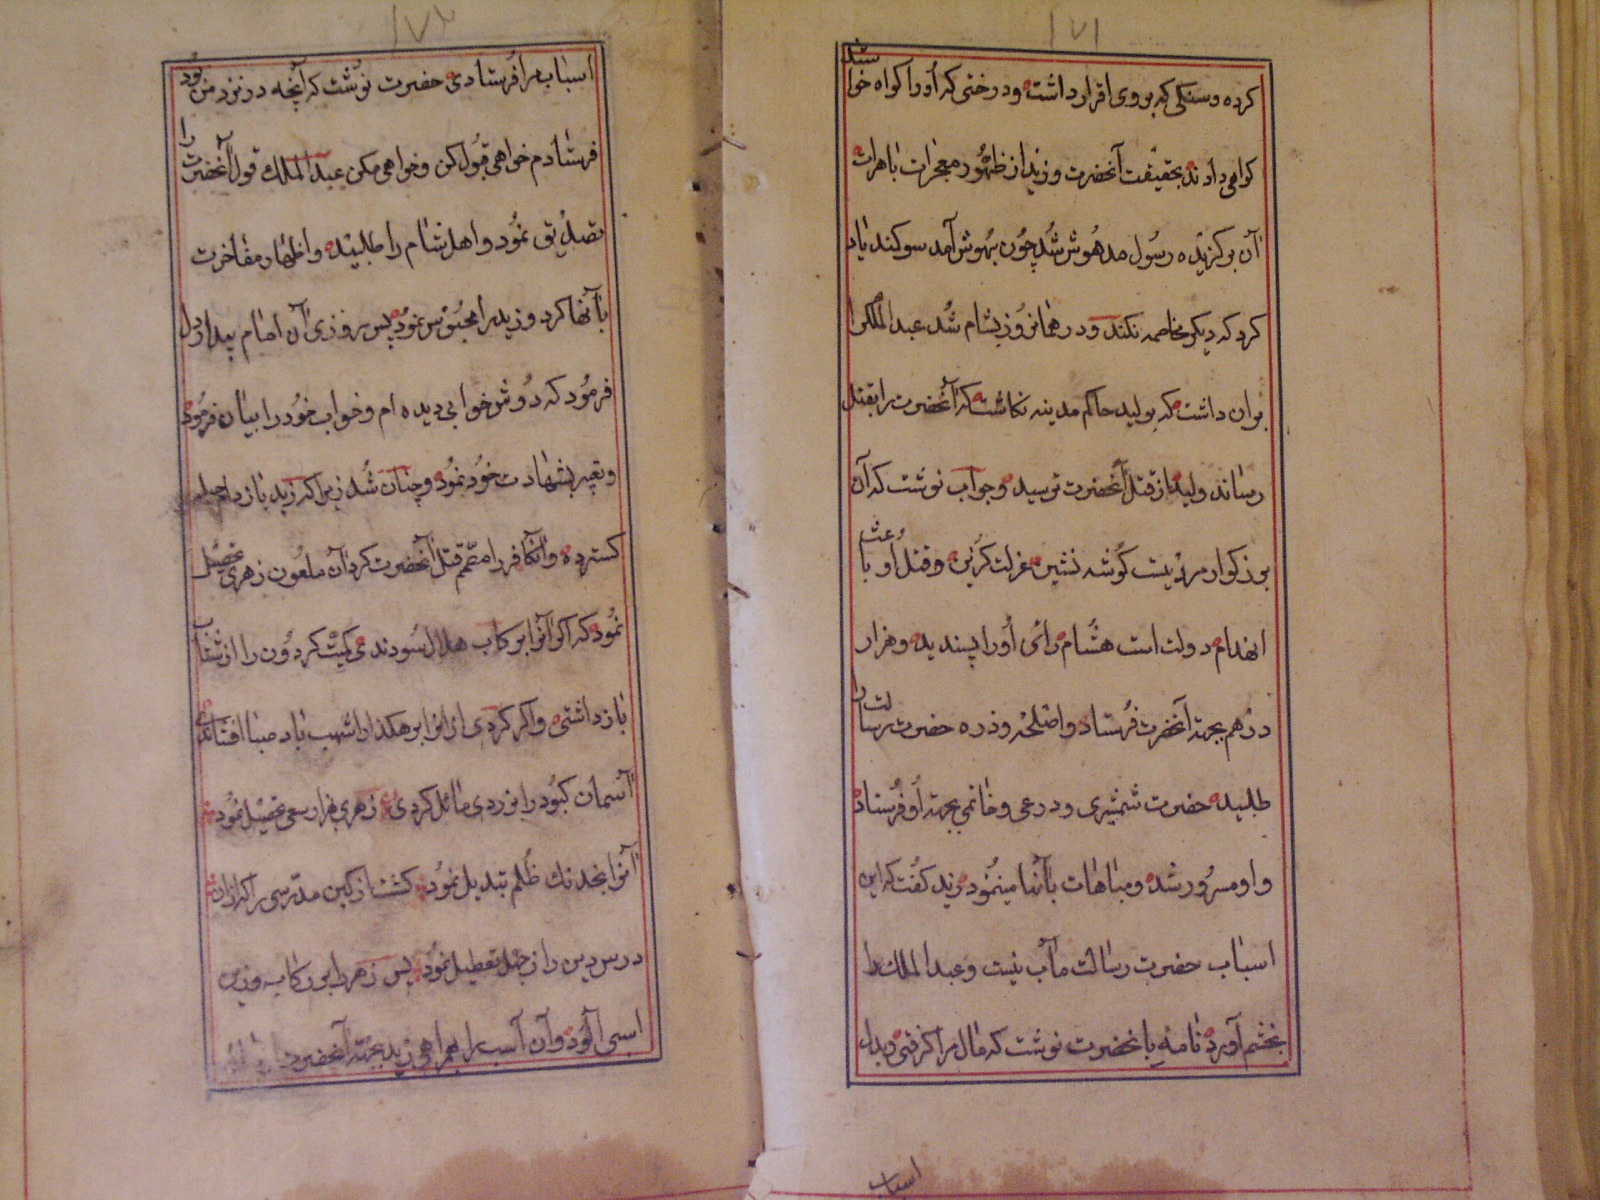 ۱۷۱
کرده و سنکی که بر وی اقرار داشت و درختی که او را کواه خواستند
کواهی دادند بحقیقت آنحضرت و زید از ظهور معجزات باهرات
آن برکزیده رسول مدهوش شد چون بهوش آمد سوکند یاد
کرد که دیکر مخاصمه نکند و در همانروز بشام شد عبد الملک را
بران داشت که بولید حاکم مدینه نکاشت که آنحضرت را بقتل
رساند ولید از قتل آنحضرت ترسید و جواب نوشت که آن
بزرکوار مردیست کوشه نشین عزلت کزین و قتل او باعث
انهدام دولت است هشام رای او را پسندید و هزار
درهم بجهة آنحضرت فرستاد و اسلحه و زره حضرت رسالت را
طلبید حضرت شمشیری و درعی و خاتمی بجهة او فرستاد
و او مسرور شد و مباهات بآنها مینمود زید کفت که این
اسباب حضرت رسالت مآب نیست و عبد الملک را
بخشم آورد نامه بآنحضرت نوشت که مال مرا کرفتی و بدل
اسباب
۱۷۲
اسباب مرا فرستادی حضرت نوشت که آنچه در نزد من بود
فرستادم خواهی قبول کن و خواهی مکن عبد الملک قول آنحضرت را
تصدیق نمود و اهل شام را طلبید و اظهار مفاخرت
بآنها کرد و زید را محبوس نمود پس روزی آن امام بیدار دل
فرمود که دوش خوابی دیده ام و خواب خود را بیان فرمود
و تعبیر بشهادت خود نمود و چنان شد زیرا که زید باز دام حیله
کسترده و آنکافر را متمم قتل آنحضرت کرد آن ملعون زهری تحصیل
نمود که اکر آنرا بر کاب هلال سودندی کیت کردون را از شتاب
باز داشتی و اکر کردی از انرا بر هکذار اشهب باد صبا افشاندی
آسمان کبود را بزردی مائل کردی زهری بهزار سعی تحصیل نمود
آنرا بخدنک ظلم تبدیل نمود کشت از کین مدرسی را که ازان
درس دین را ز جهل تعطیل نمود پس زهر را بر رکاب و زین
اسبی آلود و آن اسب را بهمراهی زید بجهة آنحضرت